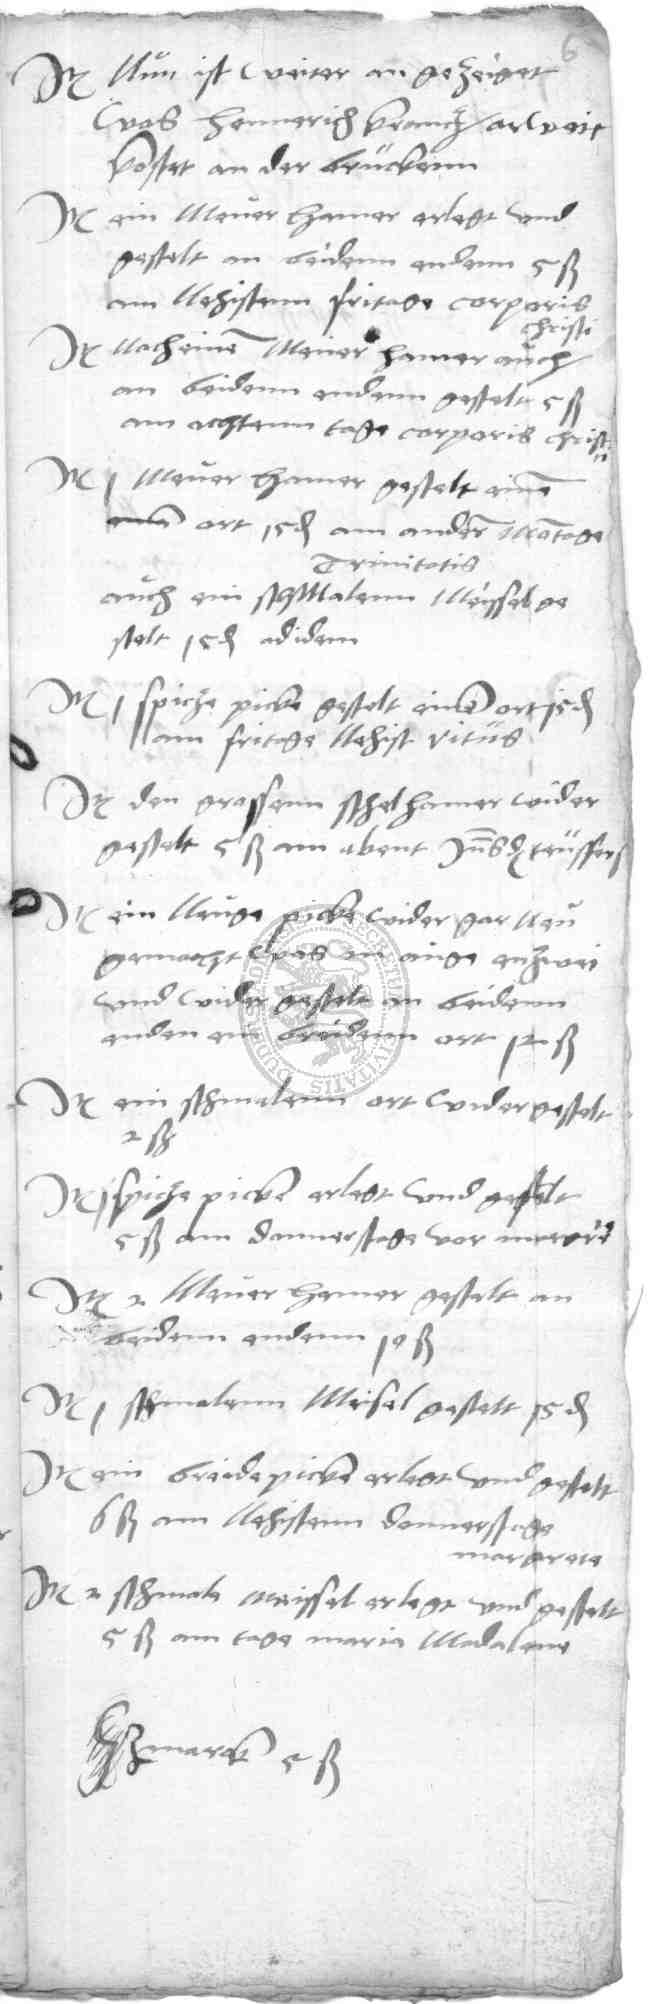 6
It Nun ist weiter an gezeiget
was Hennerich arweit
kostet an der brückenn
It ein Meuer hamer erlegt und
gestelt an beidenn endenn 5 ß
am Nehistenn fritage corporis
christi
It Noch einē Meuer hamer auch
an beidenn endenn gestelt 5 ß
am achtenn tage corporis christi
It 1 Meuer hamer gestelt einē
ort 15 ₰ am andern Mōtage
Trinitatis
auch ein schmalenn Meissel ge
stelt 15 ₰ adidem
It 1 spicze picke gestelt einē ort 15 ₰
am fritage Nehist vitus
It den grossenn schelhamer wider
gestelt 5 ß am abent teüffers
It ein picke wider gar Neu
gemacht was im auge enzwei
und wider gestelt an beidenn
enden ein breidenn ort 12 ß
It ein schmalenn ort wider gestelt
2 ß
It 1 spicze picke erlegt und gestelt
5 ß am donnerstage vor
It 2 Meuer hamer gestelt an
beidenn endenn 10 ß
It 1 schmalenn Meisel gestelt 15 ₰
It ein breide picke erlegt und gestelt
6 ß am Nehistenn donnerstage
margrete
It 2 schmale Meissel erlegt und gestelt
5 ß am tage maria Madalene
marck 5 ß